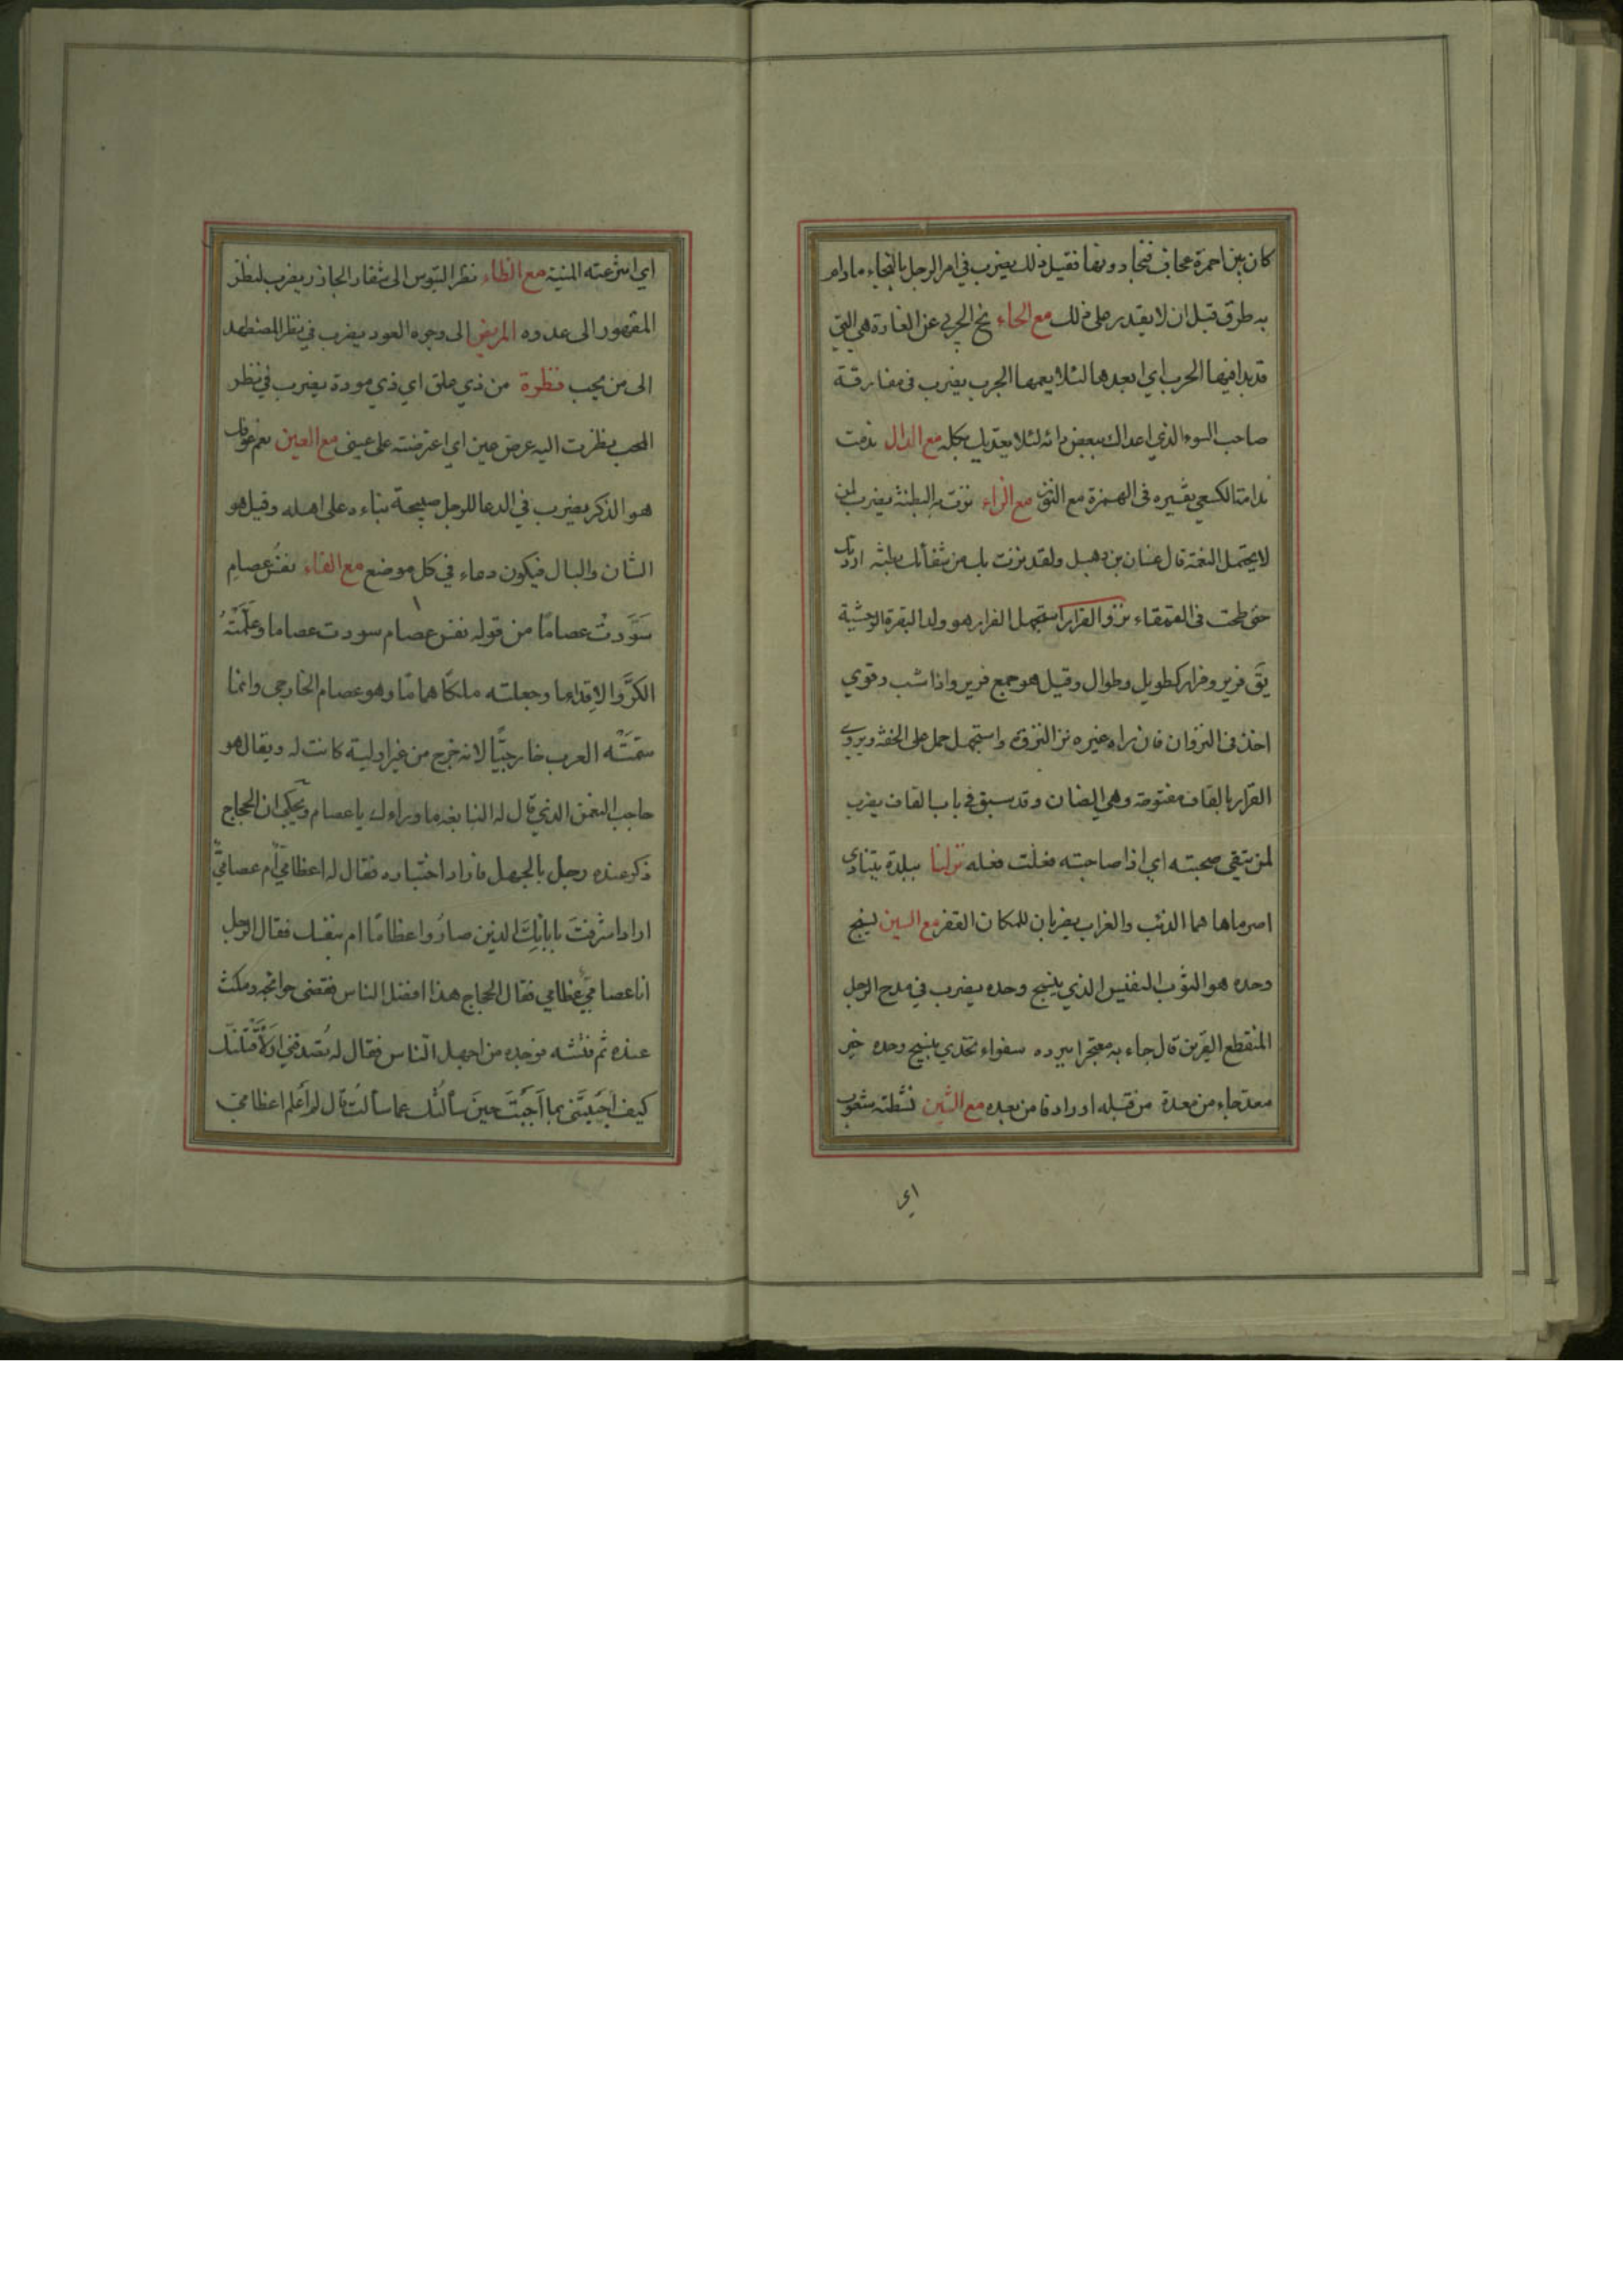 كان بين احمرة عجاف فنجا دونها فقيل ذلك يضرب في امر الرجل بالنجاء مادام
به طرق قبل ان لا يقدر على ذلك مع الحاء نح الجربى عن الغادة هي التي
قد بدا فيها الجرب اي ابعدها لئلا يعمها الجرب يضرب في مفارقة
صاحب السوء الذي اعداك ببعض دائه لئلا يعديك بكله مع الدال ندمت
ندامة الكسعي تفسيره في الهمزة مع النون مع الزاء نزت به البطنة يضرب لمن
لا يحتمل النعمة قال غسان بن دهبل ولقد نزت بك من شقائك بطنة اردتك
حتى طحت في القمقاء نزو الفرار استجهل الفرار هو ولد البقرة الوحشية
يق فرير وفرار كطويل وطوال وقيل هو جمع فرير واذا شب وقوي
اخذ في النزوان فان راه غيره نزا لنزوه واستجهل حمل على الخفة ويروى
القرار بالقاف مفتوحة وهي الضان وقد سبق في باب القاف يضرب
لمن تتقي صحبته اي اذا صاحبته فعلت فعله نزلنا ببلدة يتنادى
اصرماها هما الذئب والغراب يضربان للمكان القفر مع السين نسيج
وحده هو الثوب النفيس الذي ينسج وحده يضرب في مدح الرجل
المنقطع القرين قال جاء به معتجرا ببرده سفواء تخدي بنسيج وحده خير
معد جاء من معدة من قبله او رادفا من بعده مع الشين نشطته شعوب
اي
اي انتزعته المنية مع الظاء نظر التيوس الى شفار الجاذر يضرب لنظر
المقهور الى عدوه المريض الى وجوه العود يضرب في نظر المضطهد
الى من يحب نظرة من ذي علق اي ذي مودة يضرب في نظر
المحب نظرت اليه عرض عين اي اعترضته على عيني مع العين نعم عوفك
هو الذكر يضرب في الدعا للرجل صبيحة بناءه على اهله وقيل هو
الشان والبال فيكون دعاء في كل موضع مع الفاء نفس عصام
سَوَّدتْ عصامًا من قوله نفس عصام سودت عصاما وعلَّمَتْهُ
الكرَّ والاِقداما وجعلته ملكًا هامًا وهو عصام الخارجي وانما
سَمَّتْه العرب خارجيًّا لانه خرج من غير اولية كانت له ويقال هو
حاجب النعمن الذي قال له النابغة ما وراءك يا عصام ويحكى ان الحجاج
ذكر عنده رجل بالجهل فاراد اختباره فقال له اعظاميٌّ ام عصاميٌّ
اراد اشرفتَ بابائِكَ الذين صارُوا عظامًا ام بنفسك فقال الرجل
انا عصاميّ عظامي فقال الحجاج هذا افضل الناس فقضى حوائجه ومكث
عنده ثم فتشه فوجده من اجهل النّاس فقال له تُصدقني اوَلَأَقْتُلَنَّك
كيف اَجَبْتَني بما اَجَبْتَ حينَ سألتُك عما سألتُ قال لم اَعلم اعظاميّ